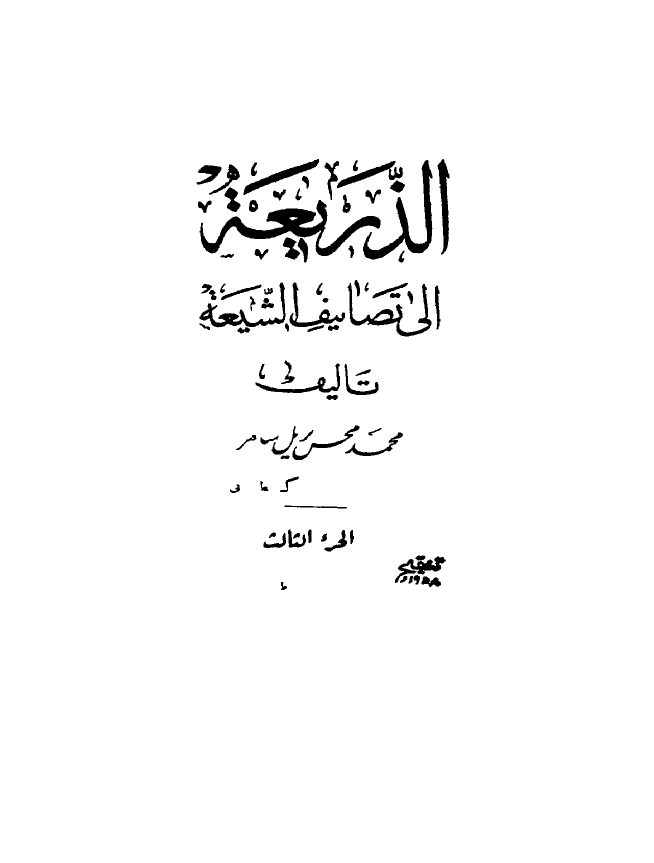 الذَّرِيعَةُ
إلى تَصَانِيفِ الشِّيعَةِ
تَأليف
محمد محسن نزيل سامر
الجزء الثالث